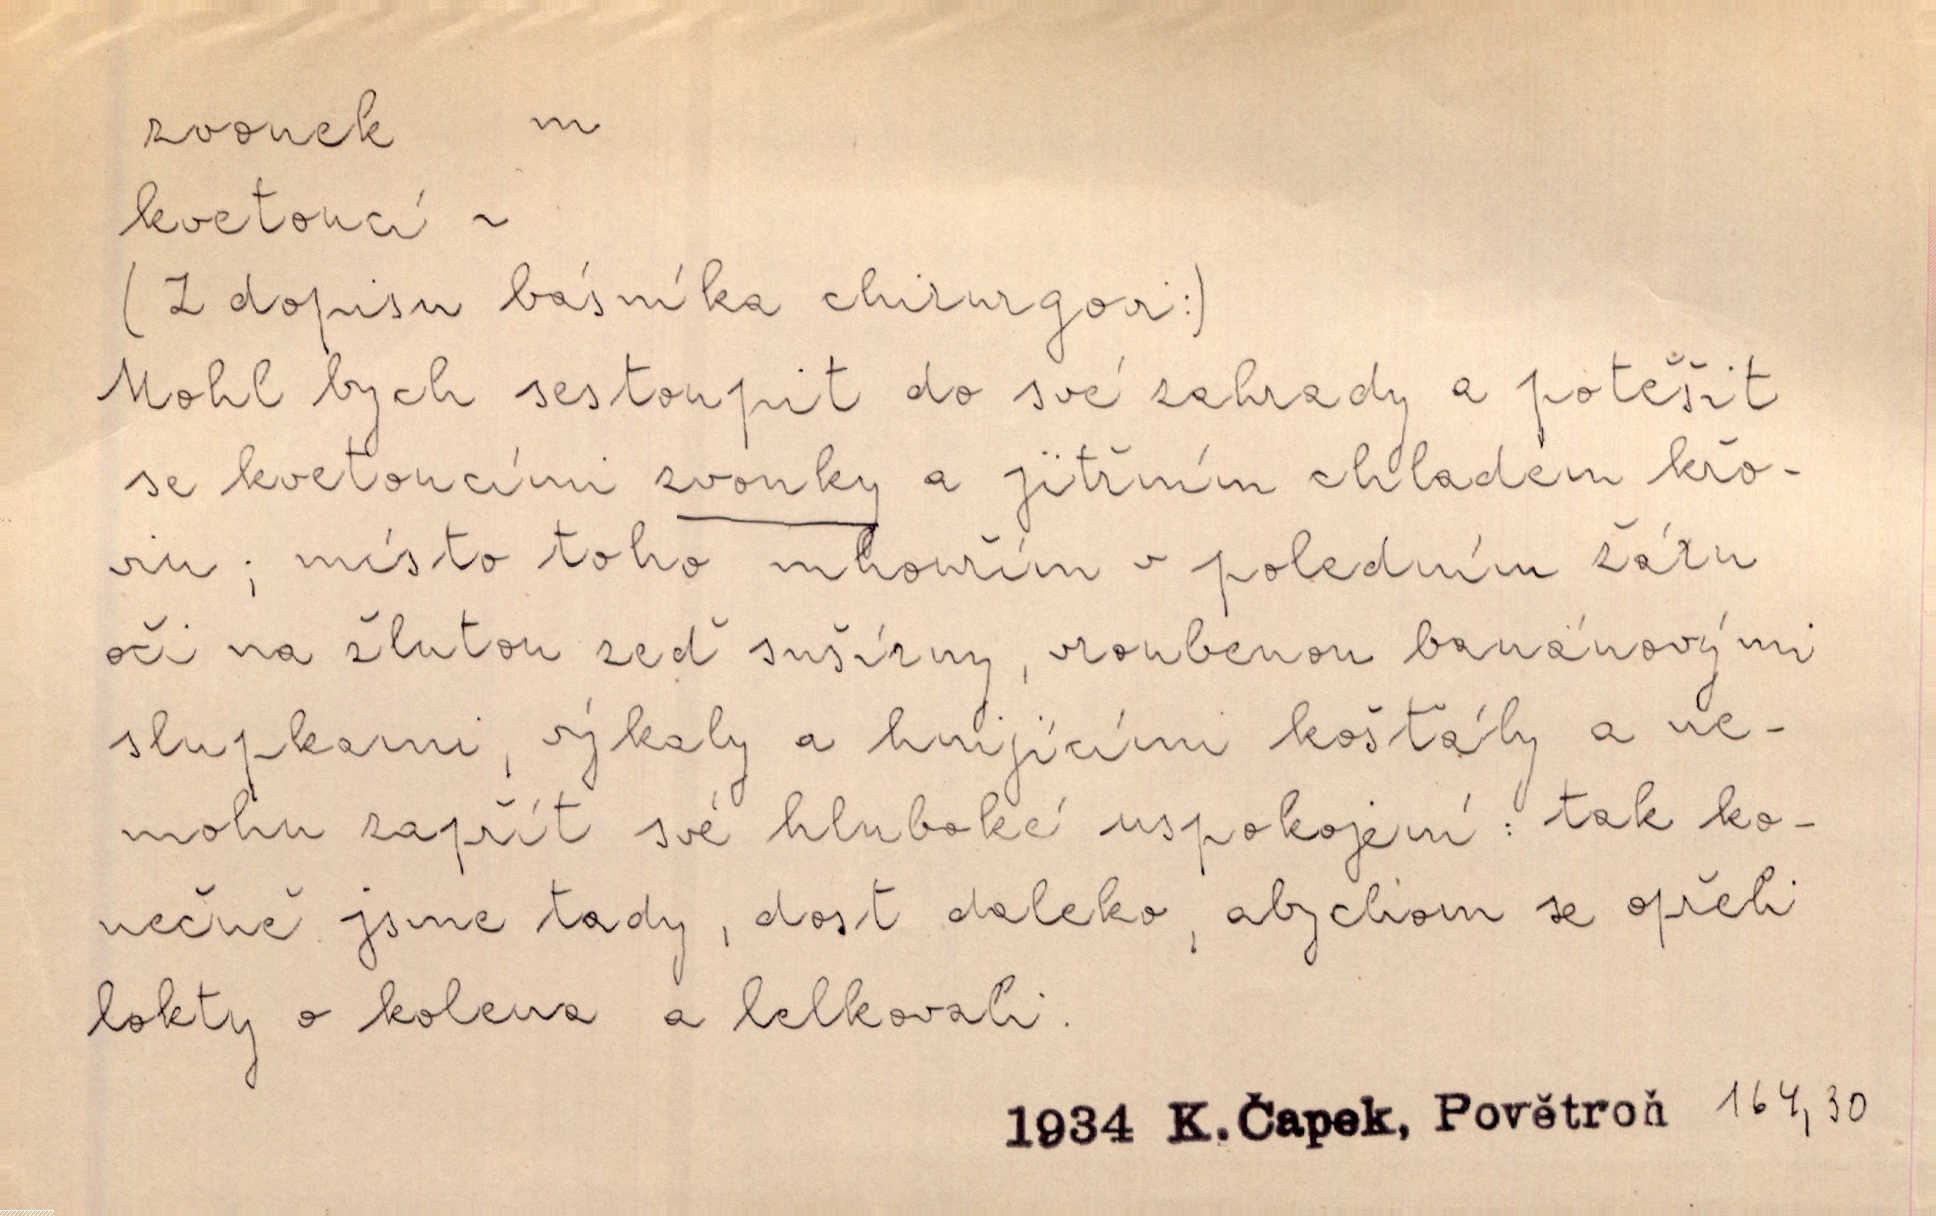 zvonek m
kvetoucí ~
(Z dopisu básníka chirurgovi:)
Mohl bych sestoupit do své zahrady a potěšit
se kvetoucími zvonky a jitřním chladem křo-
viu; místo toho mhouřím v poledním žáru
oči na žlutou zeď sušírny, vroubenou banánovými
slupkami, výkaly a hnijícími košťály a ne-
mohu zapřít své hluboké uspokojení: tak ko-
nečně jsme tady, dost daleko, abychom se opřeli
lokty o kolena a lelkovali.
1934 K. Čapek, Povětroň 164,30